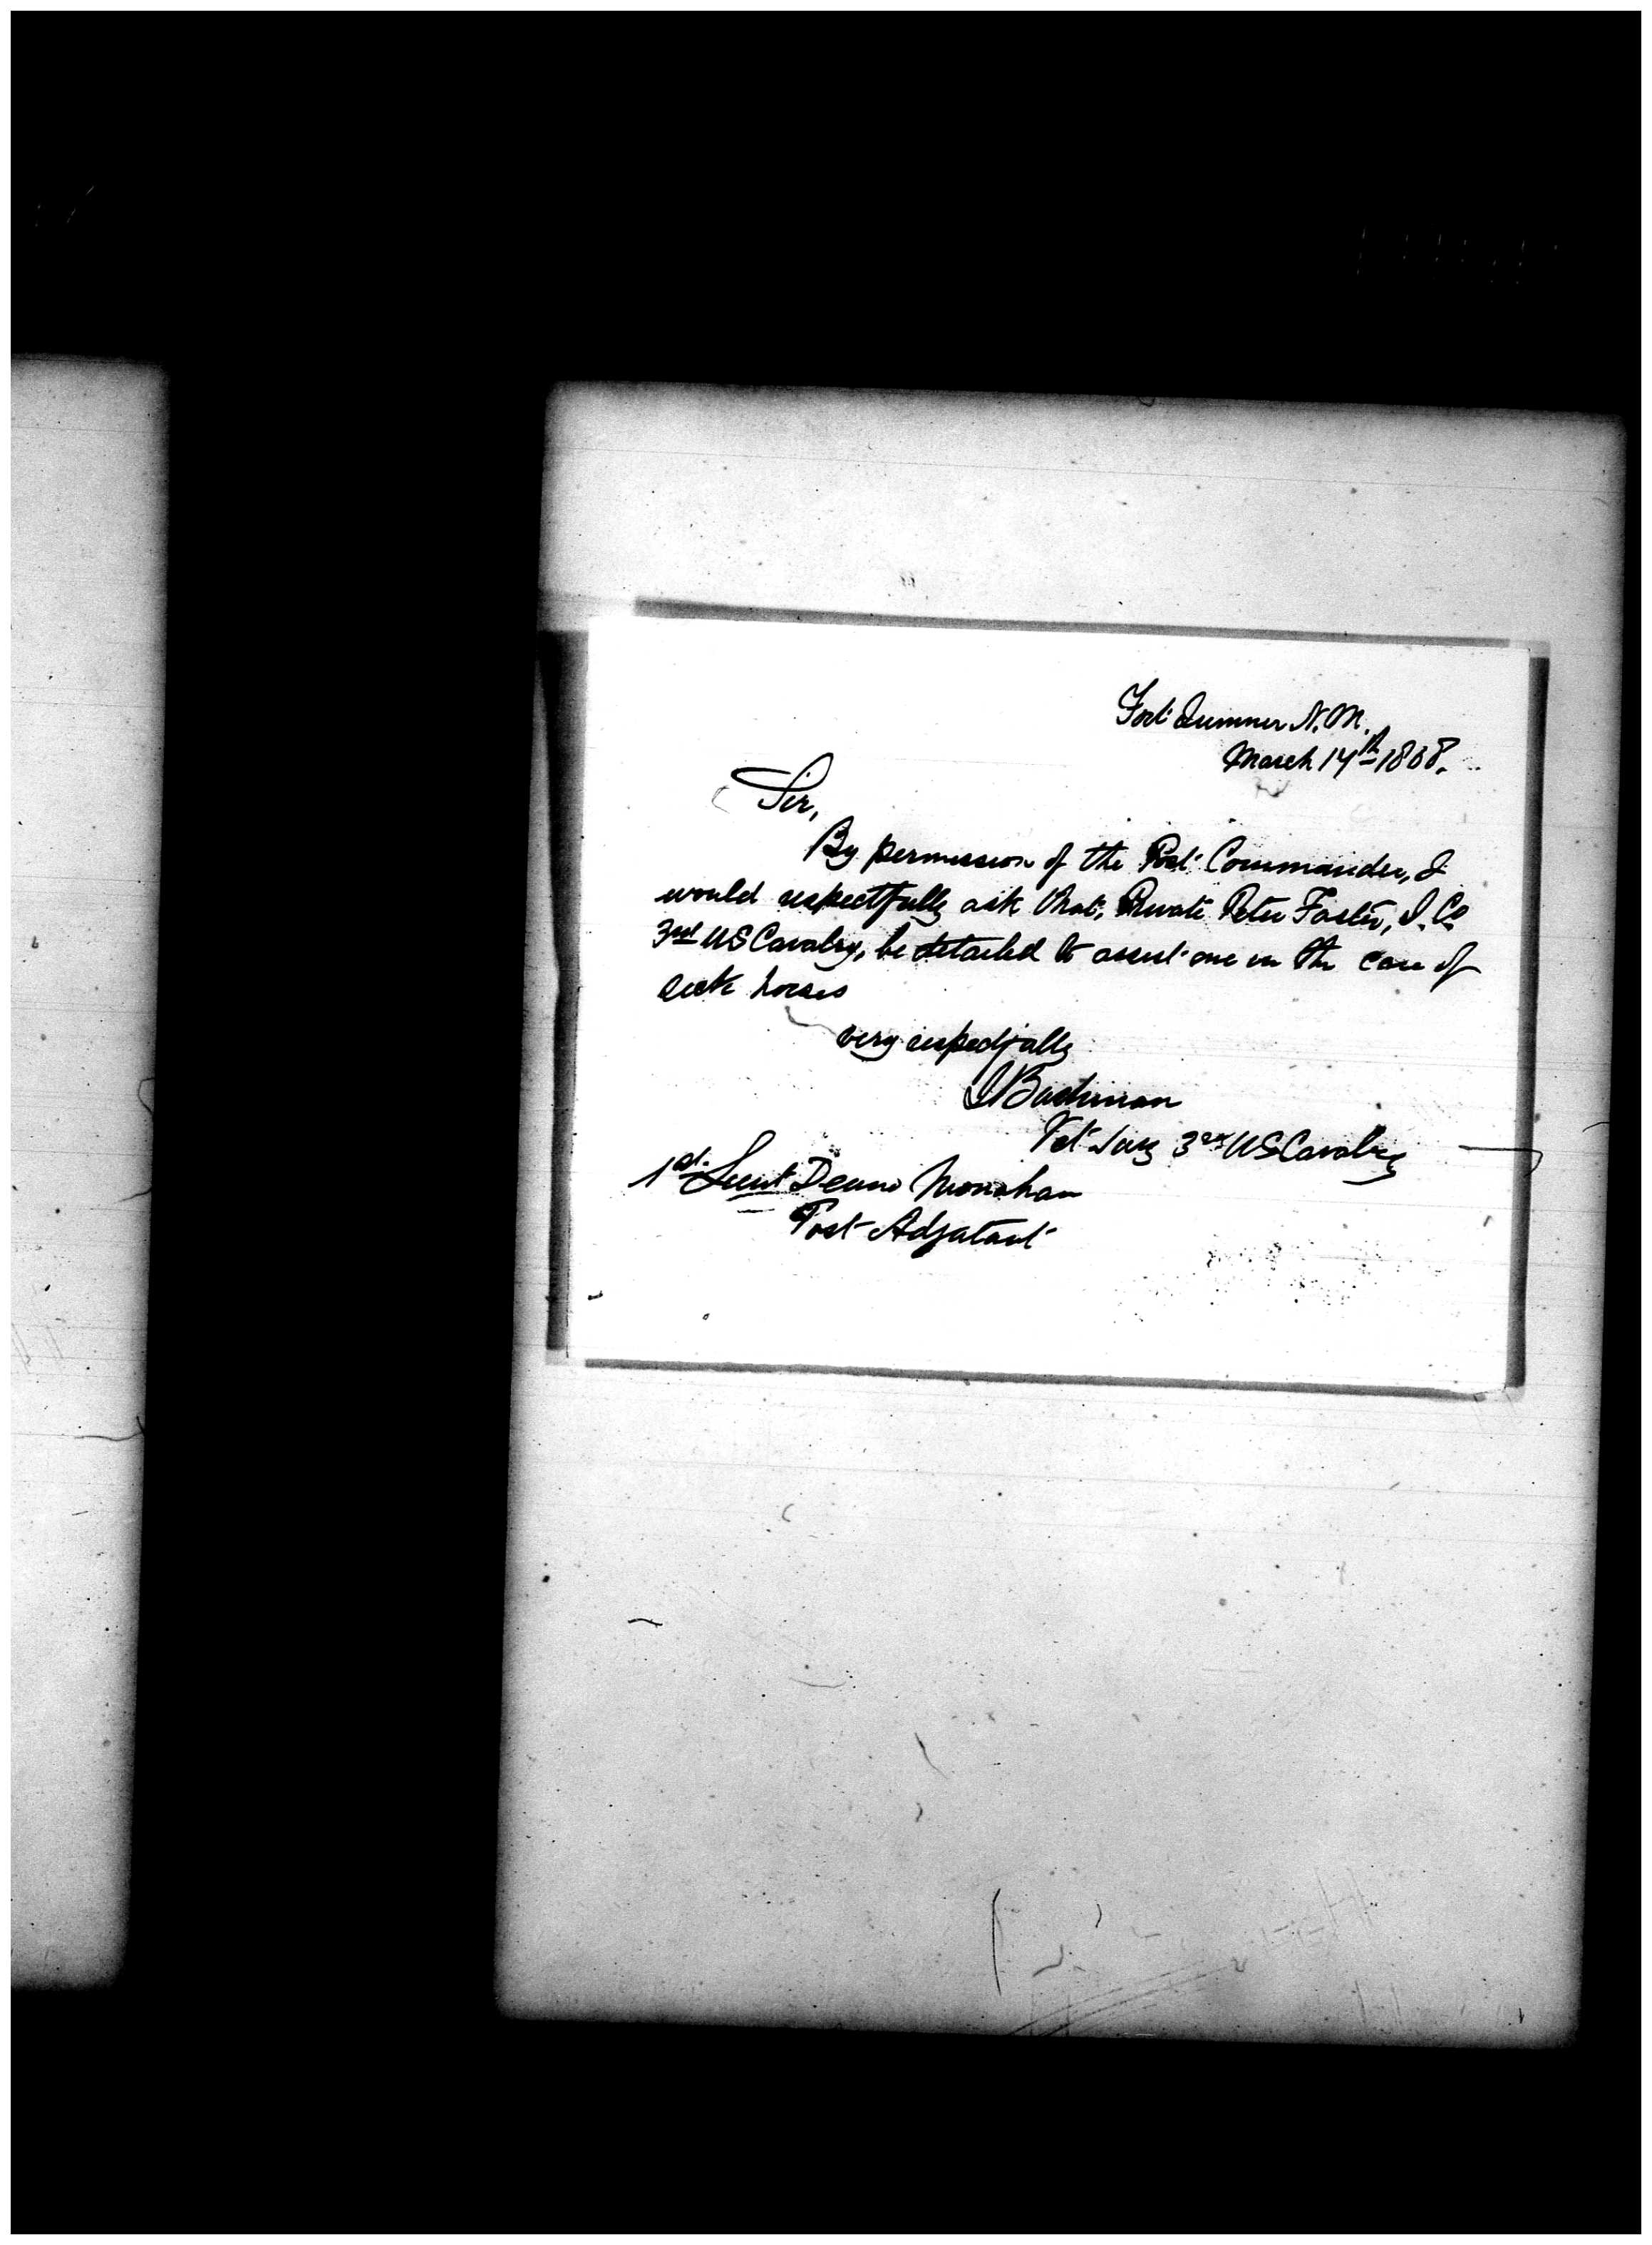 Fort Sumner N.M.
March 14th 1868.
Sir,
By permission of the Post Commander, I
would respectfully ask that, Private Peter Foster, I. Co
3rd US Cavalry, be detailed to assist me in the care of
sick horses
very respectfully
Bachman
Vet Surg 3rd US Cavalry
1st Lieut Deane Monahan
Post Adjutant